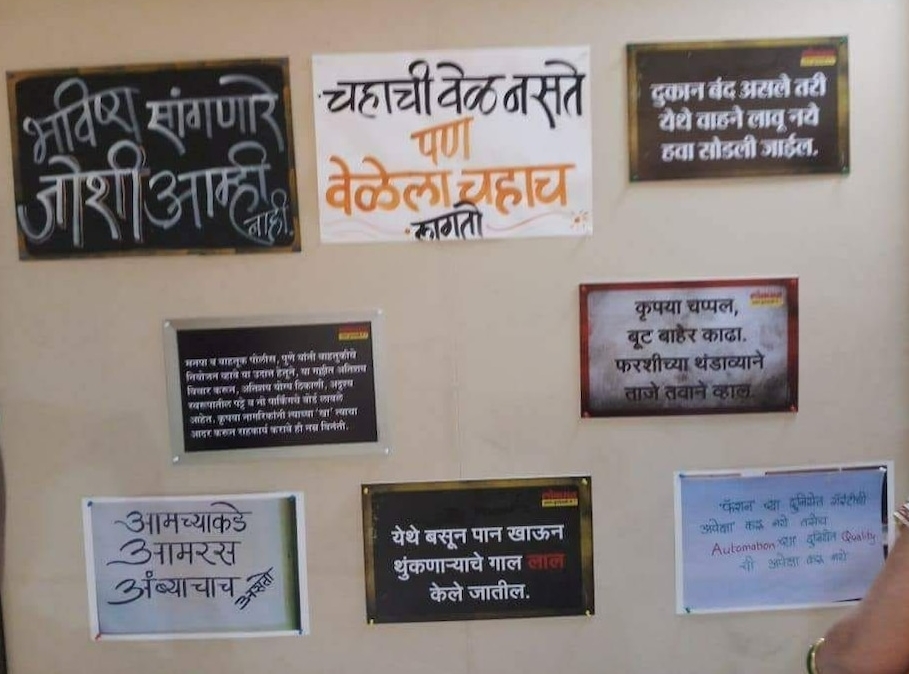 भविष्य सांगणारे
जोशी आम्ही
नाही.
चहाची वेळ नसते
पण
वेळेला चहाच
लागतो
दुकान बंद असले तरी
येथे वाहने लावू नये
हवा सोडली जाईल.
मनपा व वाहतूक पोलीस, पुणे यांनी वाहतुकीचे
नियोजन व्हावे या उदात्त हेतूने, या गल्लीत अतिशय
विचार करून, अतिशय योग्य ठिकाणी, अदृश्य
स्वरूपातील पट्टे व नो पार्किंगचे बोर्ड लावले
आहेत. कृपया नागरिकांनी त्याच्या 'खा' त्याचा
आदर करून सहकार्य करावे ही नम्र विनंती.
कृपया चप्पल,
बूट बाहेर काढा.
फरशीच्या थंडाव्याने
ताजे तवाने व्हाल.
आमच्याकडे
आमरस
अंब्याचाच
असतो
येथे बसून पान खाऊन
थुंकणाऱ्याचे गाल लाल
केले जातील.
'फॅशन' च्या दुनियेत गॅरंटीची
अपेक्षा करू नये तसेच
Automation च्या दुनियेत Quality
ची अपेक्षा करू नये